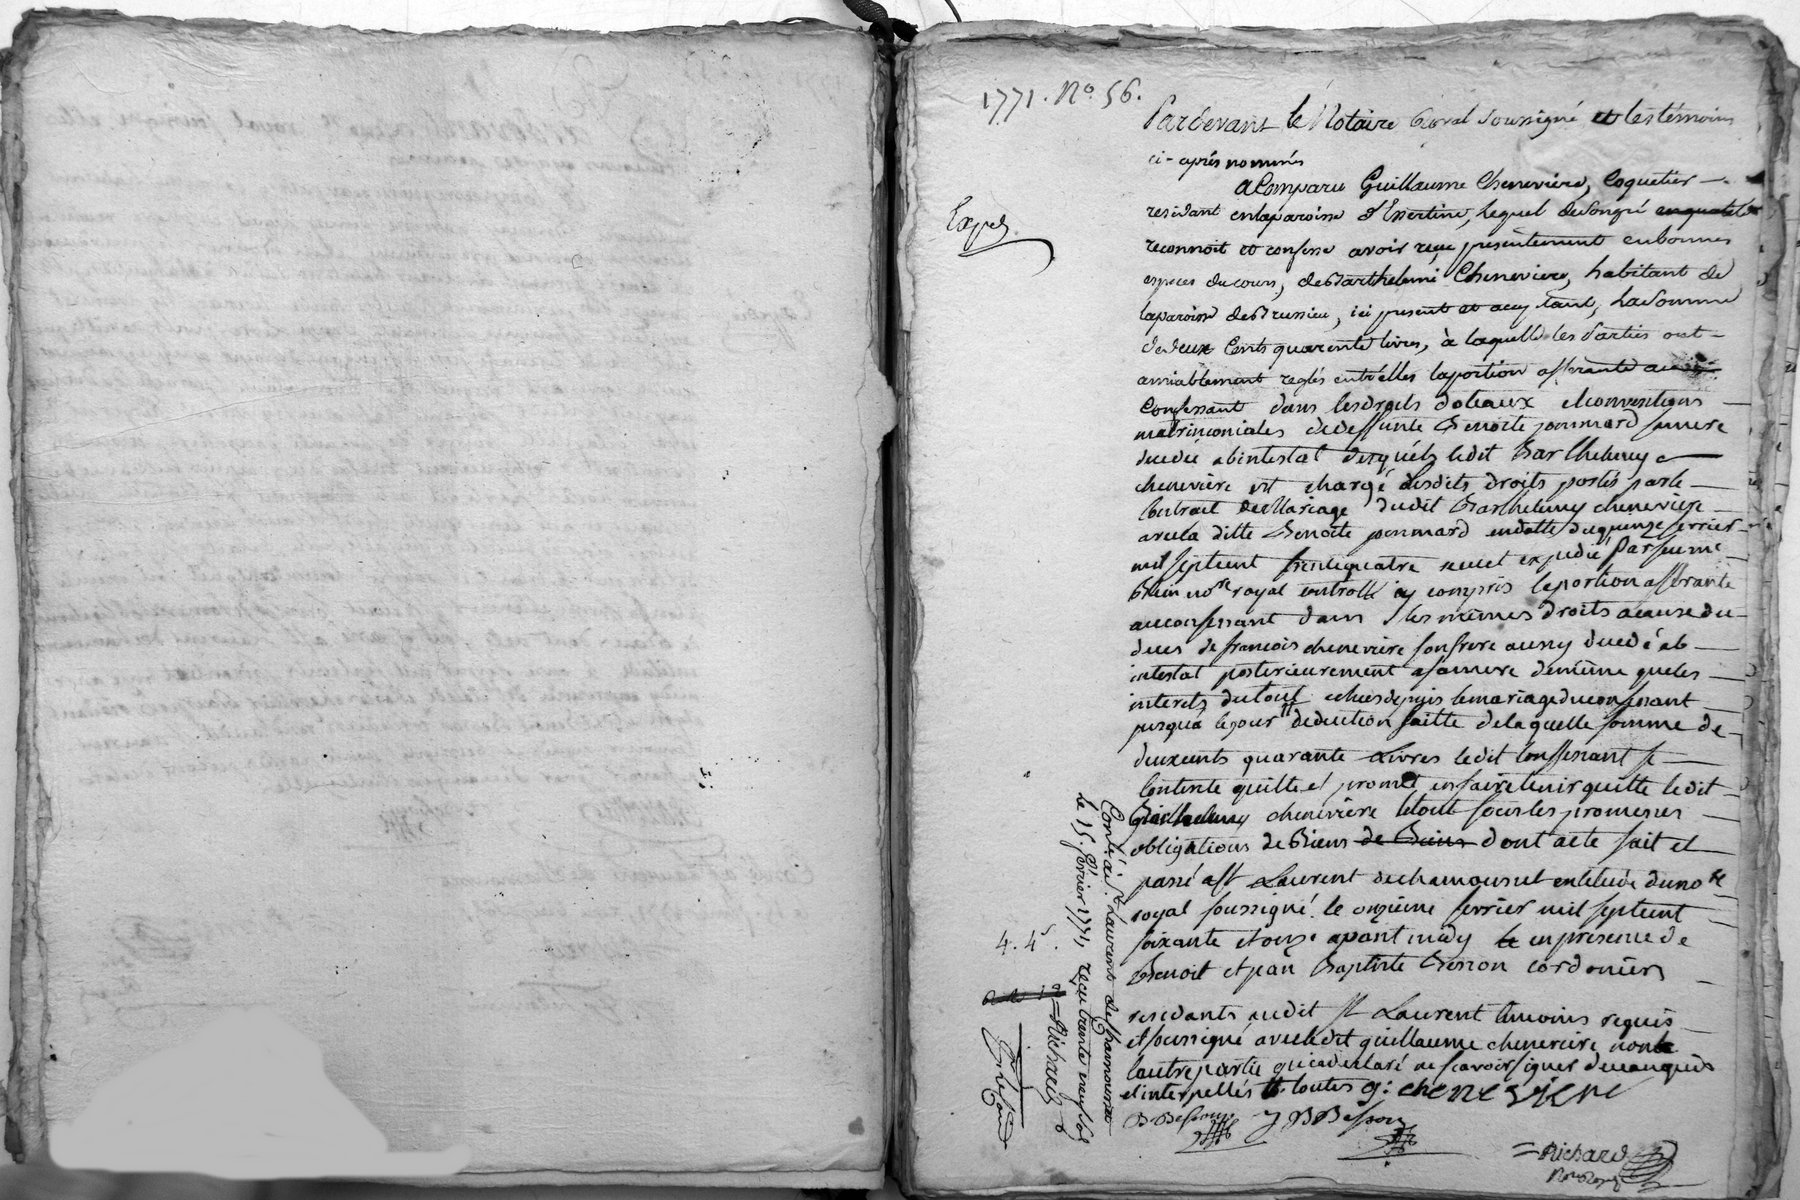 1771. No. 56.
Pardevant le Notaire Royal soussigné et les témoins
ci-après nommés
Expéd.
a Comparu Guillaume Chenevière, Coquetier
residant en la paroisse d'Essertine, Lequel de son gré
reconnoit et confesse avoir reçu présentement en bonnes
espèces du cours, de Barthelemi Chenevière, habitant de
la paroisse de Brussieu, ici present et acceptant, La Somme
de deux Cents quarente livres, à laquelle les Parties ont
amiablement reglés entr'elles la portion afférante au
Confessant dans les droits doteaux et conventions
matrimoniales de deffunte Benoite ponmard sa mere
decedée abintestat desquels ledit Barthelemy
chenevière est chargé lesdits droits portés par le
Contrat de Mariage dudit Barthelemy chenevière
avec la ditte Benoite ponmard en datte du quinze fevrier
mil sept cent trente quatre receu et expedié par feu me
no.re royal controllé y compris la portion afférante
au confessant dans les mêmes droits a cause du
deces de francois chenevière son frere aussy decedé ab
intestat posterieurement a sa mere de même que les
interets du tout echus depuis le mariage du confessant
jusqu'a ce jour deduction faitte de laquelle somme de
deux cents quarante Livres le dit Confessant se
Contente quitte et promet en faire tenir quitte le dit
Barthelemy chenevière le tout sous les promesses
obligations de Biens de Biens dont acte fait et
passé a St Laurent de chamousset en l'étude du no.re
royal soussigné le onzieme fevrier mil sept cent
soixante et onze avant midy en présence de
Benoit et jean Baptiste Besson cordoniers
residants audit St Laurent temoins requis
et soussigné avec le dit guillaume chenevière non
l'autre partie qui a declaré ne scavoir signer de ce enquis
et interpellés toutes g: cheneviere
B Besson J B Besson
=Richard
No.re Royal
Con.lé à St. Laurent de Chamousset
le 15. fevrier 1771, reçu trente neuf sol
=Richard
4. 4s.